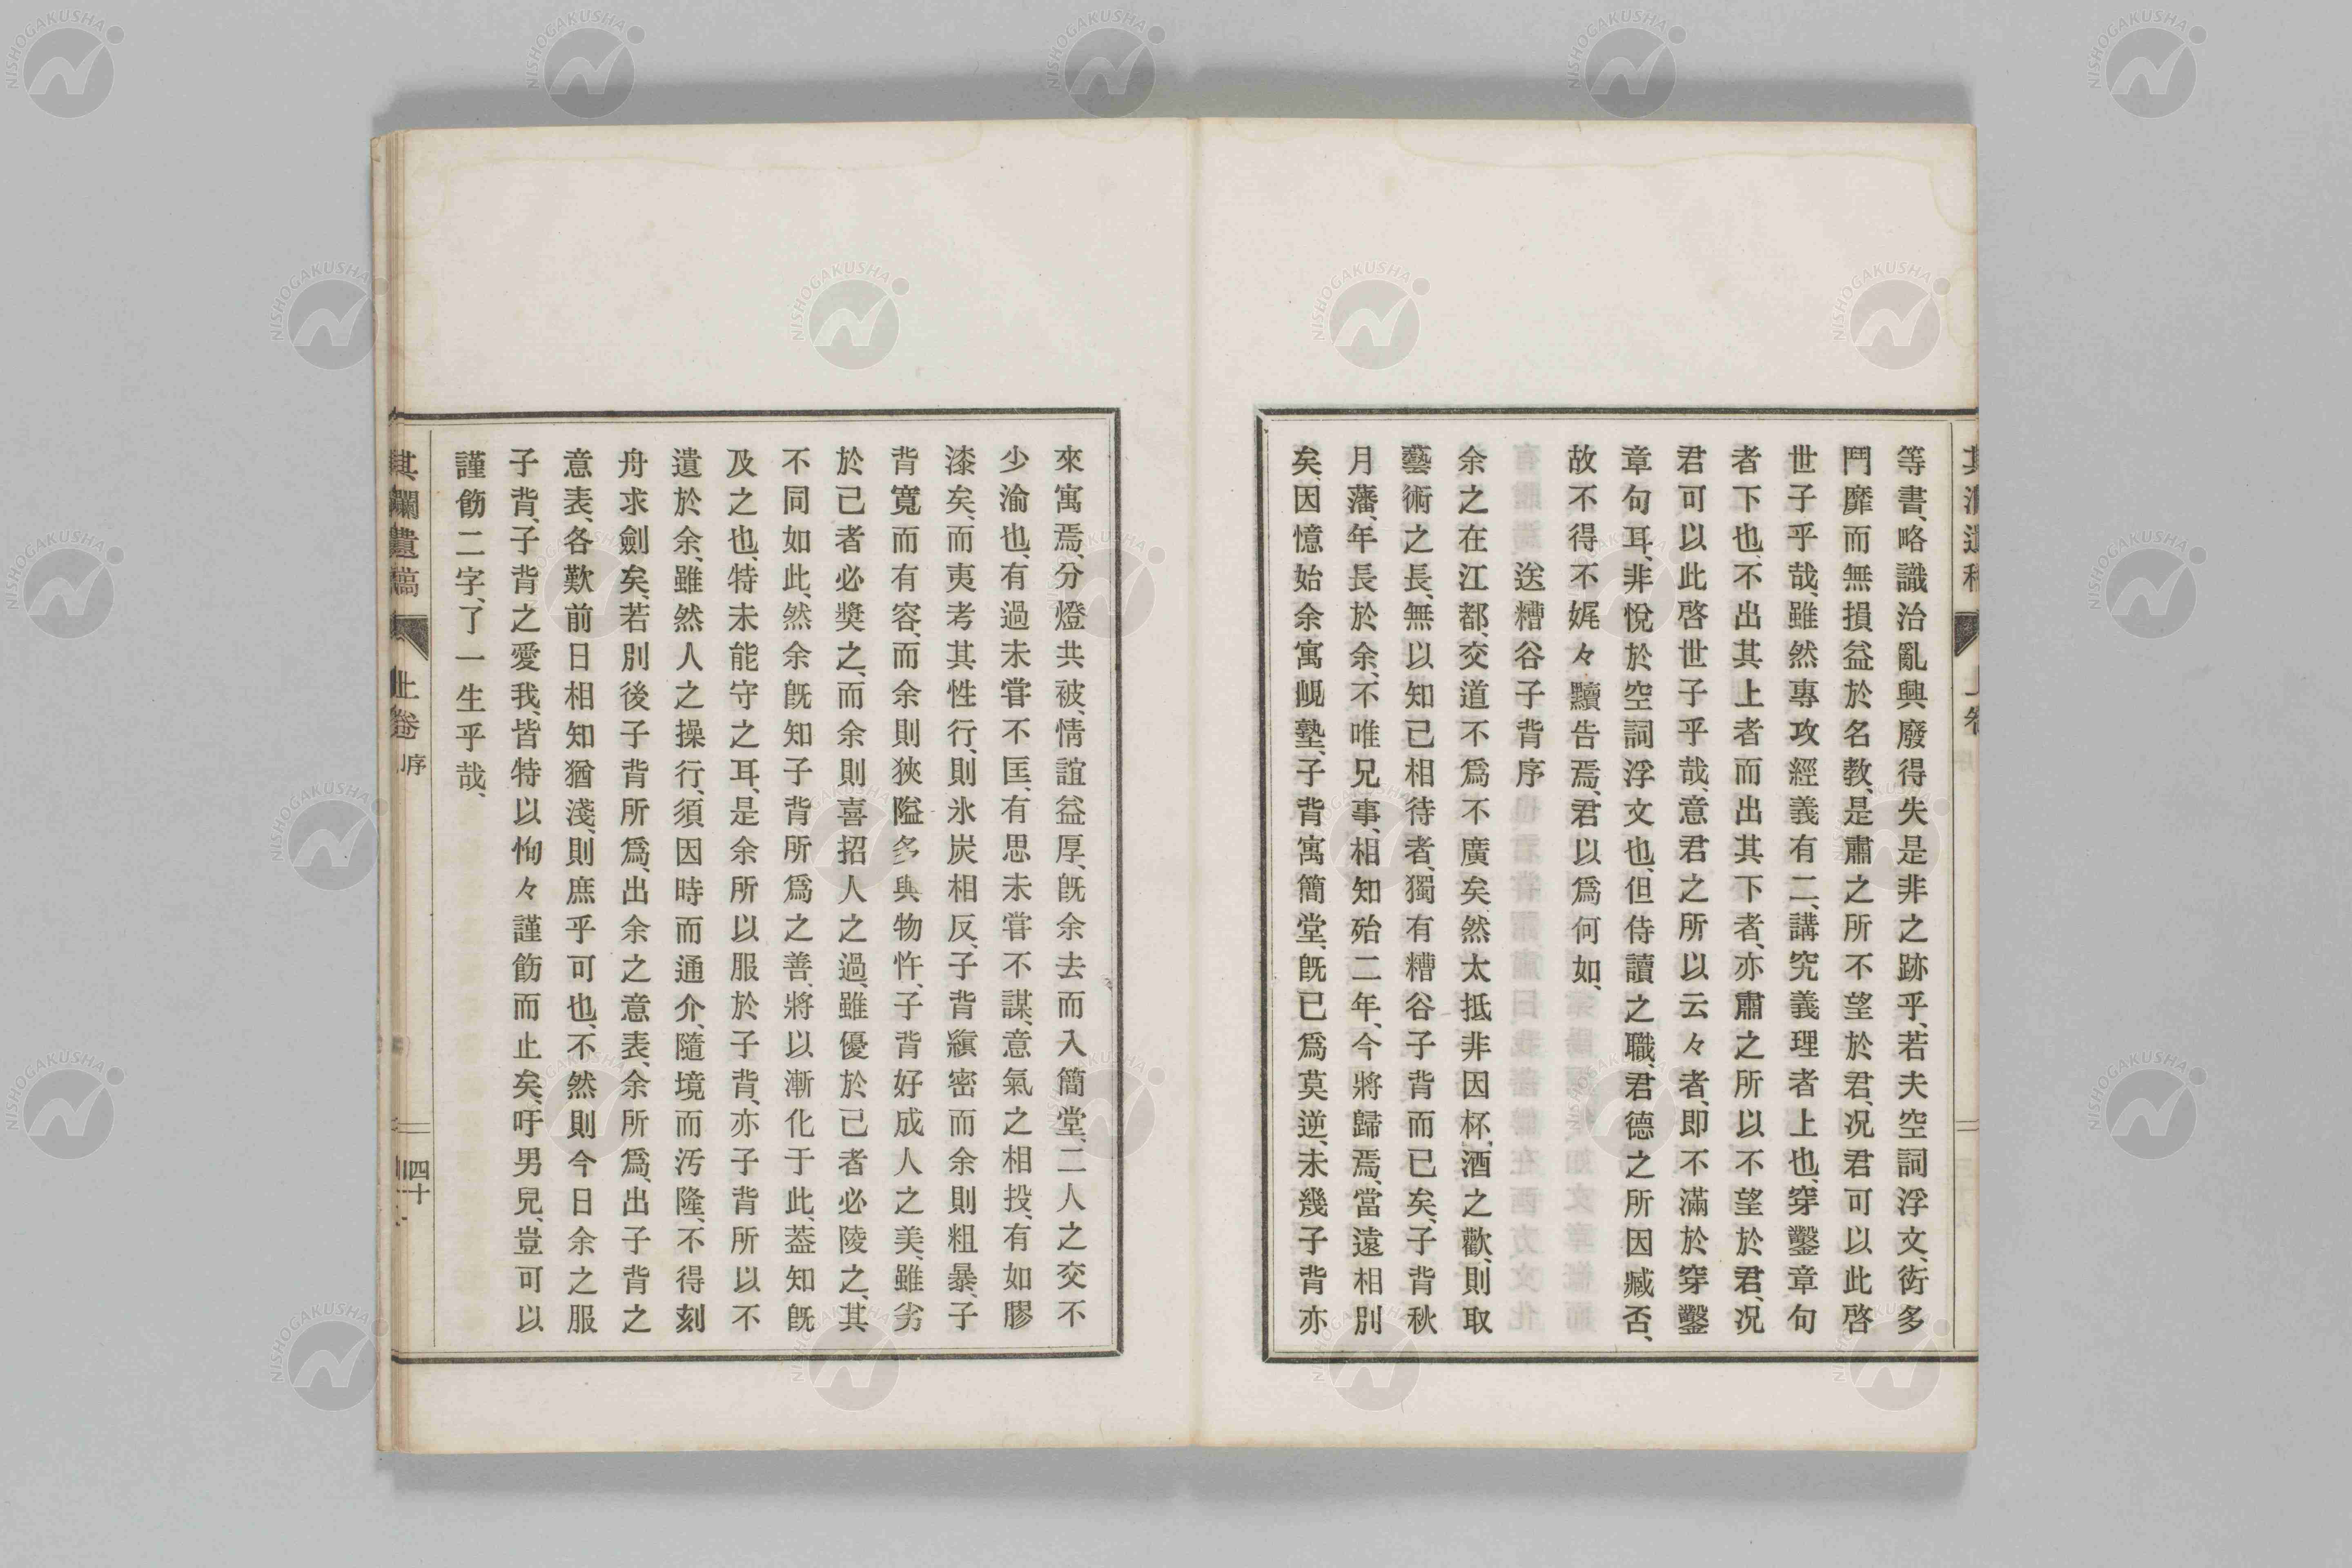 等書、略識治亂興廢得失是非之跡乎、若夫空詞浮文、衒多
鬥靡而無損益於名教、是肅之所不望於君、况君可以此啓
世子乎哉、雖然專攻經義有二、講究義理者上也、穿鑿章句
者下也、不出其上者而出其下者、亦肅之所以不望於君、况
君可以此啓世子乎哉、意君之所以云々者、即不滿於穿鑿
章句耳、非悅於空詞浮文也、但侍讀之職、君德之所因臧否、
故不得不娓々黷告焉、君以爲何如、
送糟谷子背序
余之在江都、交道不爲不廣矣然太抵非因杯酒之歡、則取
藝術之長、無以知己相待者、獨有糟谷子背而已矣、子背秋
月藩、年長於余、不唯兄事、相知殆二年、今將歸焉、當遠相別
矣、因憶始余寓峴塾、子背寓簡堂、旣已爲莫逆、未幾子背亦
來寓焉、分燈共被、情誼益厚、旣余去而入簡堂、二人之交不
少渝也、有過未甞不匡、有思未甞不謀、意氣之相投、有如膠
漆矣、而夷考其性行、則氷炭相反、子背縝密而余則粗暴、子
背寬而有容、而余則狹隘多與物忤、子背好成人之美、雖劣
於己者必奬之、而余則喜招人之過、雖優於己者必陵之、其
不同如此、然余旣知子背所爲之善、將以漸化于此、葢知旣
及之也、特未能守之耳、是余所以服於子背、亦子背所以不
遺於余、雖然人之操行、須因時而通介、隨境而汚隆、不得刻
舟求劍矣、若別後子背所爲、出余之意表、余所爲、出子背之
意表、各歎前日相知猶淺、則庶乎可也、不然則今日余之服
子背、子背之愛我、皆特以恂々謹飭而止矣、吁男兒、豈可以
謹飭二字、了一生乎哉、
其瀾遺稿 上卷 序 四十